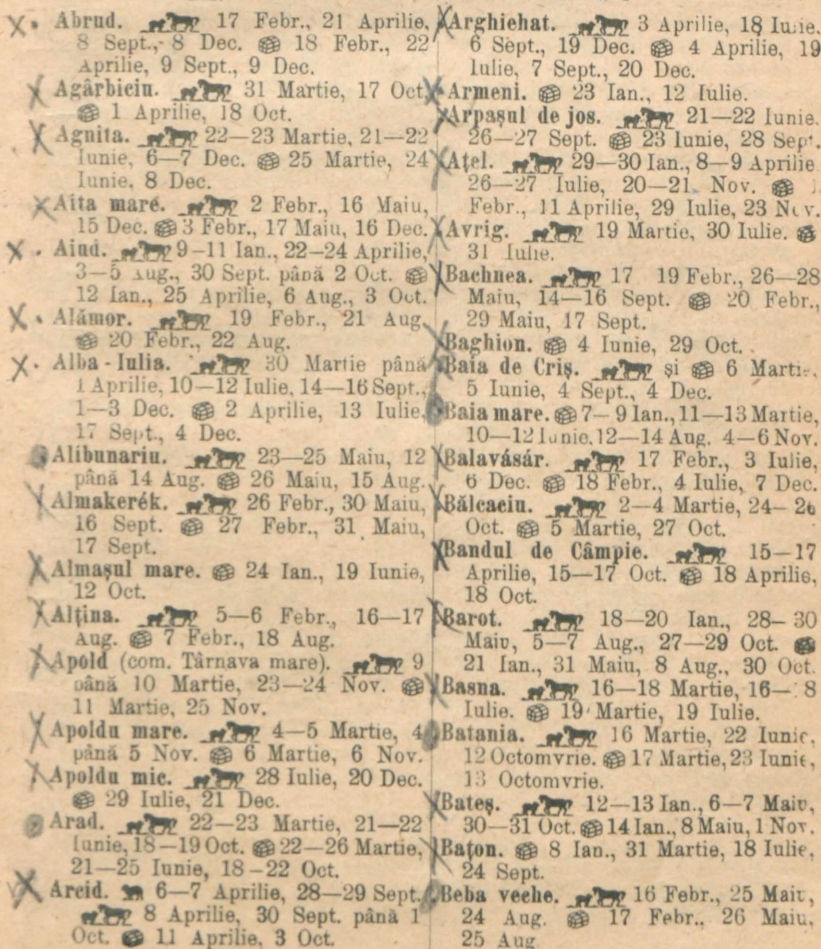 Abrud. 17 Febr., 21 Aprilie,
8 Sept., 8 Dec. 18 Febr., 22
Aprilie, 9 Sept., 9 Dec.
Agârbiciu. 31 Martie, 17 Oct.
1 Aprilie, 18 Oct.
Agnita. 22—23 Martie, 21—22
Iunie, 6—7 Dec. 25 Martie, 24
Iunie, 8 Dec.
Aita mare. 2 Febr., 16 Maiu,
15 Dec. 3 Febr., 17 Maiu, 16 Dec.
Aiud. 9-11 Ian., 22—24 Aprilie,
3—5 Aug., 30 Sept. până 2 Oct.
12 Ian., 25 Aprilie, 6 Aug., 3 Oct.
Alămor. 19 Febr., 21 Aug.
20 Febr., 22 Aug.
Alba-Iulia. 30 Martie până
1 Aprilie, 10—12 Iulie, 14—16 Sept.,
1—3 Dec. 2 Aprilie, 13 Iulie,
17 Sept., 4 Dec.
Alibunariu. 23—25 Maiu, 12
până 14 Aug. 26 Maiu, 15 Aug.
Almakerék. 26 Febr., 30 Maiu,
16 Sept. 27 Febr., 31 Maiu,
17 Sept.
Almașul mare. 24 Ian., 19 Iunie,
12 Oct.
Alțina. 5—6 Febr., 16—17
Aug. 7 Febr., 18 Aug.
Apold (com. Târnava mare). 9
până 10 Martie, 23—24 Nov.
11 Martie, 25 Nov.
Apoldu mare. 4—5 Martie, 4
până 5 Nov. 6 Martie, 6 Nov.
Apoldu mic. 28 Iulie, 20 Dec.
29 Iulie, 21 Dec.
Arad. 22—23 Martie, 21—22
Iunie, 18—19 Oct. 22—26 Martie,
21—25 Iunie, 18-22 Oct.
Arcid. 6—7 Aprilie, 28—29 Sept.
8 Aprilie, 30 Sept. până 1
Oct. 11 Aprilie, 3 Oct.
Arghiehat. 3 Aprilie, 18 Iunie.
6 Sept., 19 Dec. 4 Aprilie, 19
Iulie, 7 Sept., 20 Dec.
Armeni. 23 Ian., 12 Iulie.
Arpașul de jos. 21—22 Iunie.
26—27 Sept. 23 Iunie, 28 Sept.
Ațel. 29—30 Ian., 8—9 Aprilie
26—27 Iulie, 20—21 Nov.
Febr., 11 Aprilie, 29 Iulie, 23 Nov.
Avrig. 19 Martie, 30 Iulie.
31 Iulie.
Bachnea. 17 19 Febr., 26—28
Maiu, 14—16 Sept. 20 Febr.,
29 Maiu, 17 Sept.
Baghion. 4 Iunie, 29 Oct.
Baia de Criș. și 6 Martie,
5 Iunie, 4 Sept., 4 Dec.
Baia mare. 7—9 Ian., 11—13 Martie,
10—12 Iunie, 12—14 Aug. 4—6 Nov.
Balavásár. 17 Febr., 3 Iulie,
6 Dec. 18 Febr., 4 Iulie, 7 Dec.
Bălcaciu. 2—4 Martie, 24-26
Oct. 5 Martie, 27 Oct.
Bandul de Câmpie. 15—17
Aprilie, 15—17 Oct. 18 Aprilie,
18 Oct.
Barot. 18—20 Ian., 28-30
Maiu, 5—7 Aug., 27—29 Oct.
21 Ian., 31 Maiu, 8 Aug., 30 Oct.
Basna. 16—18 Martie, 16— 8
Iulie. 19 Martie, 19 Iulie.
Batania. 16 Martie, 22 Iunie,
12 Octomvrie. 17 Martie, 23 Iunie,
13 Octomvrie.
Bateș. 12—13 Ian., 6—7 Maiu,
30—31 Oct. 14 Ian., 8 Maiu, 1 Nov.
Bațon. 8 Ian., 31 Martie, 18 Iulie,
24 Sept.
Beba veche. 16 Febr., 25 Maiu,
24 Aug. 17 Febr., 26 Maiu,
25 Aug.